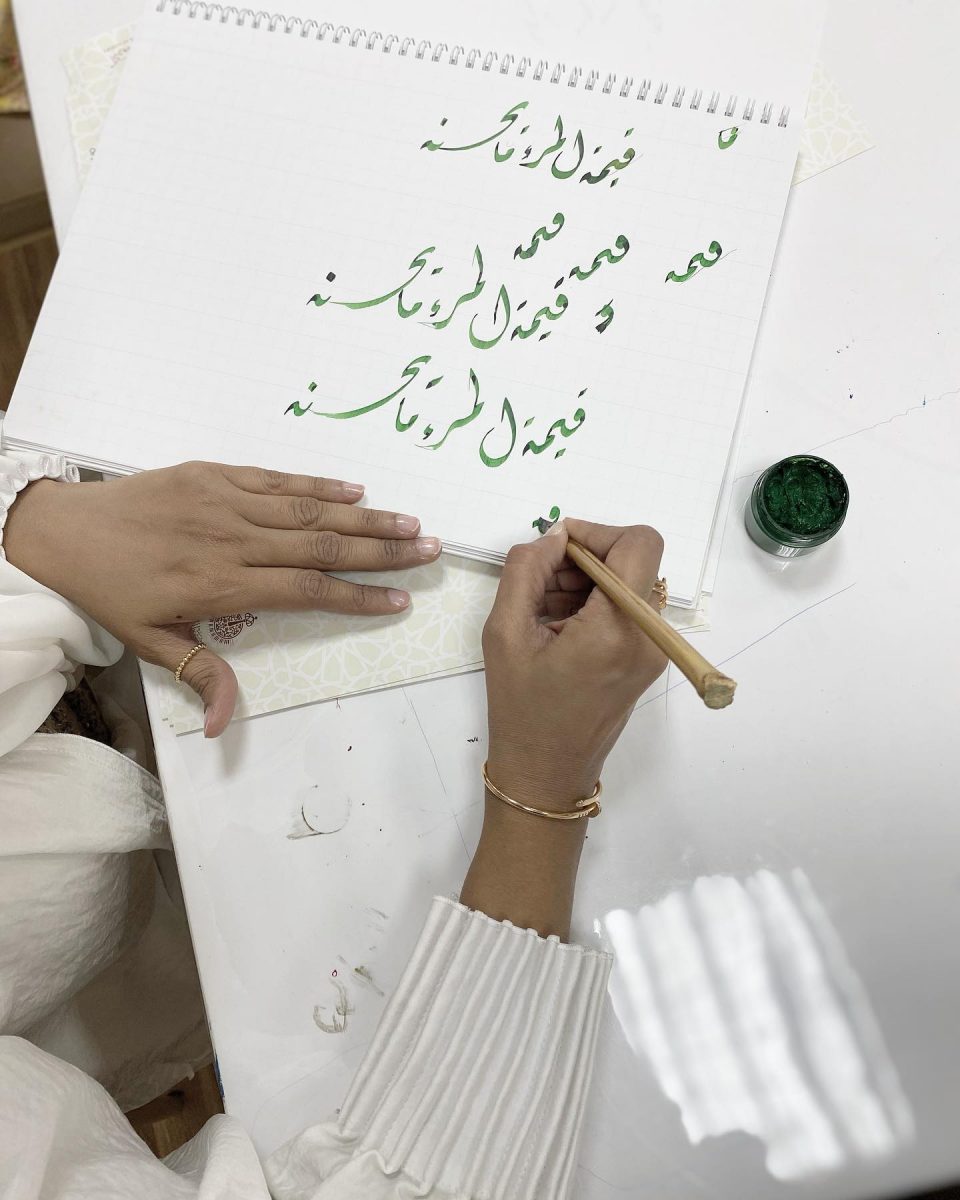 قيمة المرء ما يحسنه
ق
قيمه
قيمه
قيمه
قيمة المرء ما يحسنه
قيمة المرء ما يحسنه